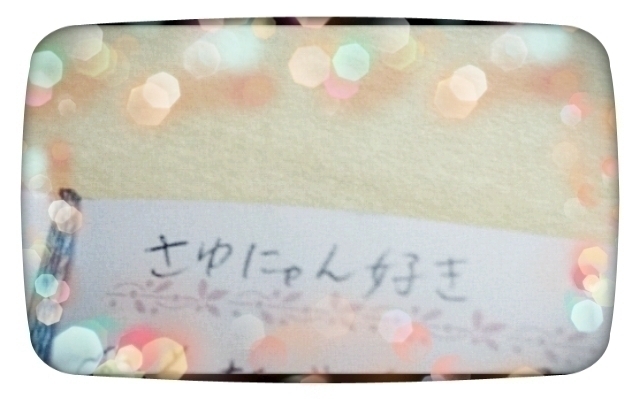 さゆにゃん好き